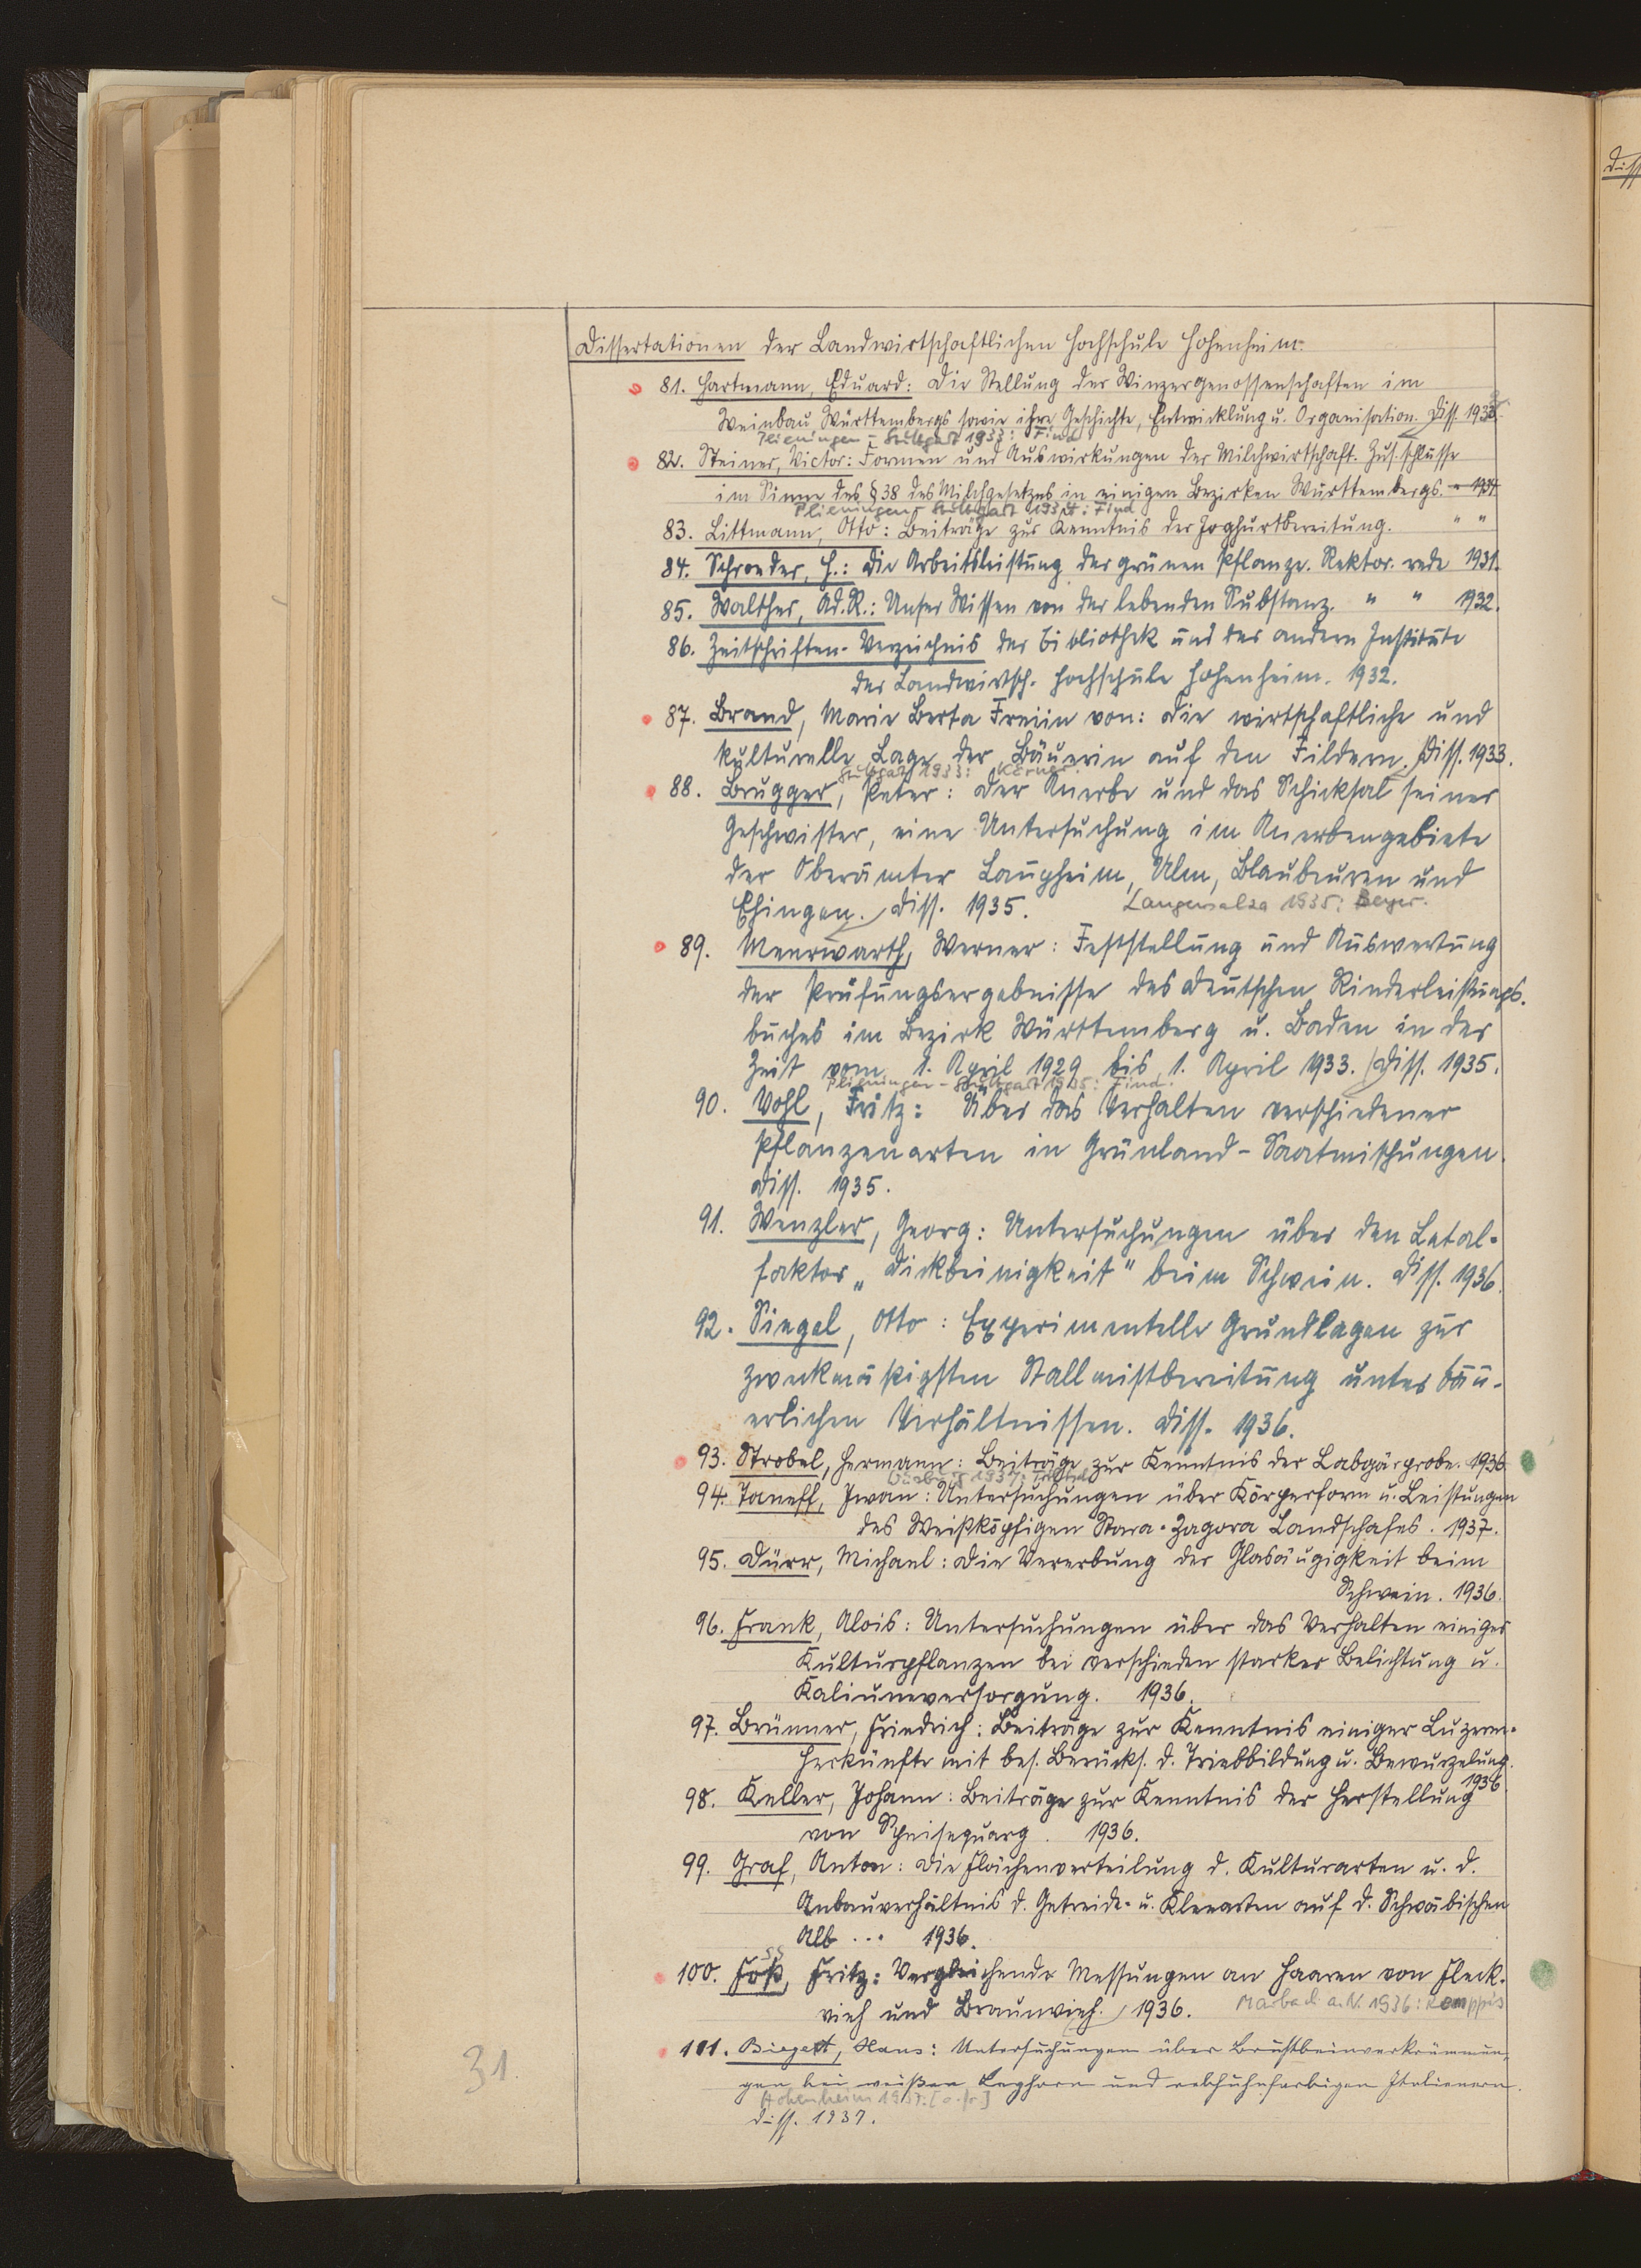 Dissertationen der Landwirtschaftlichen Hochschule Hohenheim:
81. Hartmann, Eduard: Die Stellung der Winzergenossenschaften im
Weinbau Württembergs sowie ihre Geschichte, Entwicklung u. Organisation. Diss. 1933.
Plieningen - Stuttgart 1933: Find
82. Steiner, Victor: Formen und Auswirkungen der Milchwirtschaft. Zus.schlüsse
im Sinne des § 38 des Milchgesetzes in einigen Bezirken Württembergs. " 1934
Plieningen - Stuttgart 1934: Find
83. Littmann, Otto: Beiträge zur Kenntnis der Joghurtbereitung. " "
84. Schroeder, H.: Die Arbeitsleistung der grünen Pflanze. Rektor. rede 1931.
85. Walther, Ad. R.: Unser Wissen von der lebenden Substanz. " " 1932.
86. Zeitschriften-Verzeichnis der Bibliothek und der andern Institute
der Landwirtsch. Hochschule Hohenheim. 1932.
87. Brand, Marie Berta Freiin von: Die wirtschaftliche und
kulturelle Lage der Bäuerin auf den Fildern. Diss. 1933.
Stuttgart 1933: Körner.
88. Brugger, Peter: Der Anerbe und das Schicksal seiner
Geschwister, eine Untersuchung im Anerbengebiete
der Oberämter Laupheim, Ulm, Blaubeuren und
Ehingen. Diss. 1935. Langensalza 1935: Beyer.
89. Meerwarth, Werner: Feststellung und Auswertung
der Prüfungsergebnisse des deutschen Rinderleistungs-
buches im Bezirk Württemberg u. Baden in der
Zeit vom 1. April 1929 bis 1. April 1933. Diss. 1935.
Plieningen - Stuttgart 1935: Find.
90. Vohl, Fritz: Über das Verhalten verschiedener
Pflanzenarten in Grünland-Saatmischungen.
Diss. 1935.
91. Wenzler, Georg: Untersuchungen über den Letal-
faktor „Dickbeinigkeit" beim Schwein. Diss. 1936.
92. Siegel, Otto: Experimentelle Grundlagen zur
zweckmäßigsten Stallmistbereitung unter bäu-
erlichen Verhältnissen. Diss. 1936.
93. Strobel, Hermann: Beiträge zur Kenntnis der Labgärprobe. 1936
1937: Triltsch
94. Taneff, Iwan: Untersuchungen über Körperform u. Leistungen
des Weißköpfigen Stara-Zagora Landschafes. 1937.
95. Dürr, Michael: Die Vererbung der Glasäugigkeit beim
Schwein. 1936.
96. Frank, Alois: Untersuchungen über das Verhalten einiger
Kulturpflanzen bei verschieden starker Belichtung u.
Kaliumversorgung. 1936.
97. Brünner, Friedrich: Beiträge zur Kenntnis einiger Luzerne-
herkünfte mit bes. Berücks. d. Triebbildung u. Bewurzelung.
1936.
98. Keller, Johann: Beiträge zur Kenntnis der Herstellung
von Speisequarg. 1936.
99. Graf, Anton: Die Flächenverteilung d. Kulturarten u. d.
Anbauverhältnis d. Getreide- u. Kleearten auf d. Schwäbischen
Alb ... 1936.
ss
100. Foß, Fritz: Vergleichende Messungen an Haaren von Fleck-
vieh und Braunvieh. 1936. Marbach a. N. 1936: Remppis
101. Biegert, Hans: Untersuchungen über Brustbeinverkrümmun-
gen bei weißen Leghorn und rebhuhnfarbigen Italienern.
Hohenheim 1937: [o. Dr.]
Diss. 1937.
31.
Diss